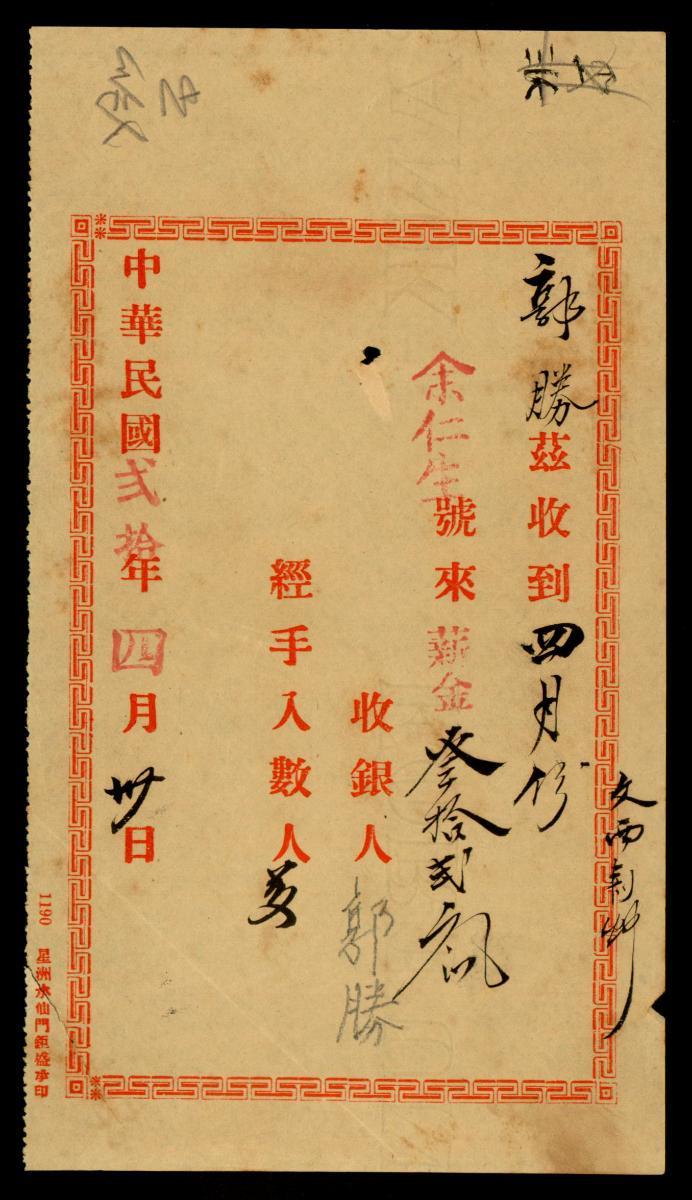 郭勝茲收到四月份
余仁生號來薪金叄拾弍
收銀人郭勝
經手入數人
中華民國弍拾年四月卅日
1190 星洲水仙門鉅盛承印